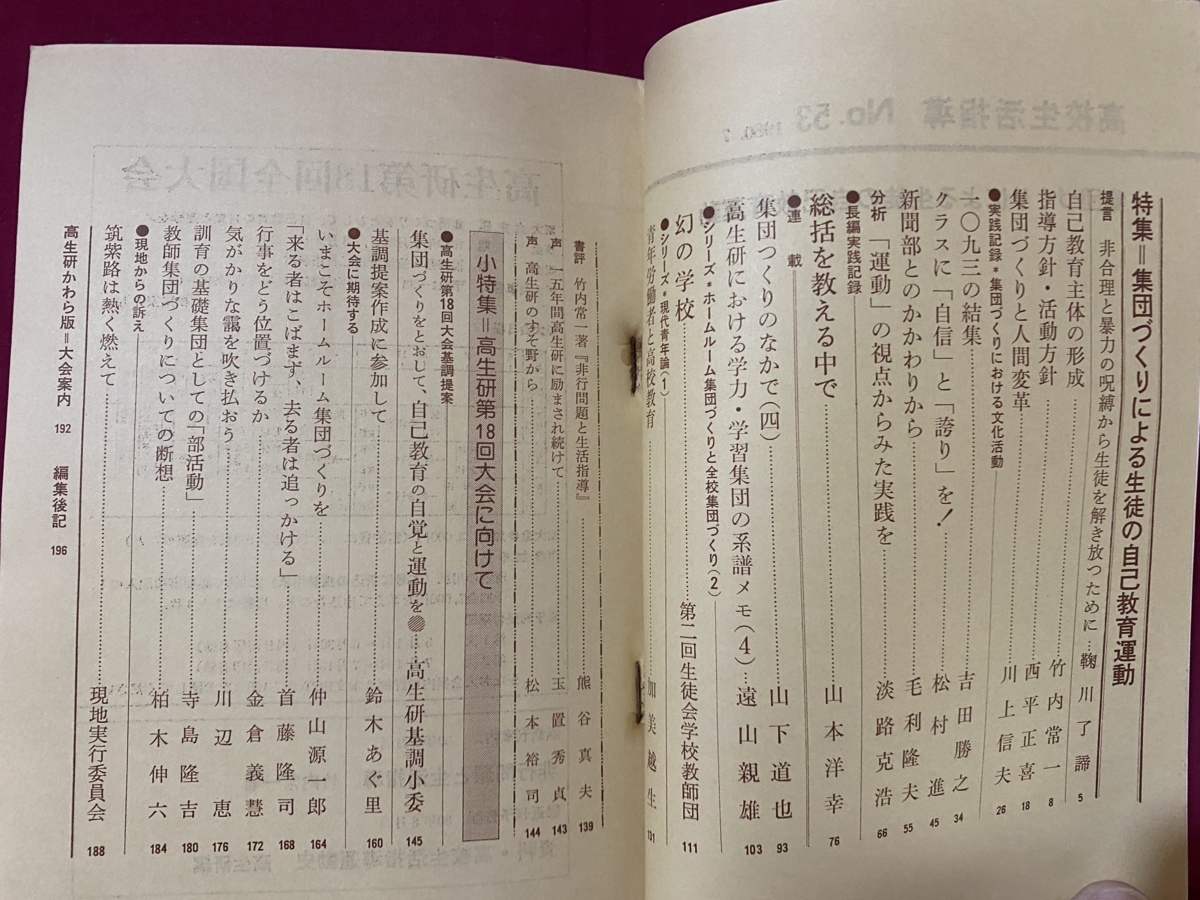 特集＝集団づくりによる生徒の自己教育運動
提言 非合理と暴力の呪縛から生徒を解き放つために…鞠川了諦 5
自己教育主体の形成……竹内常一 8
指導方針・活動方針……西平正喜 18
集団づくりと人間変革……川上信夫 26
●実践記録＊集団づくりにおける文化活動
一〇九三の結集……吉田勝之 34
クラスに「自信」と「誇り」を！……松村進 45
新聞部とのかかわりから……毛利隆夫 55
分析 「運動」の視点からみた実践を……淡路克浩 66
●長編実践記録
総括を教える中で……山本洋幸 76
●連載
集団つくりのなかで（四）……山下道也 93
高生研における学力・学習集団の系譜メモ（4）…遠山親雄 103
●シリーズ＊ホームルーム集団づくりと全校集団づくり（2）
幻の学校……第二回生徒会学校教師団 111
●シリーズ＊現代青年論（1）
青年労働者と高校教育……加美越生 131
書評 竹内常一著『非行問題と生活指導』……熊谷真夫 139
声 一五年間高生研に励まされ続けて……玉置秀貞 143
声 高生研のすそ野から……松本裕司 144
小特集＝高生研第18回大会に向けて
●高生研第18回大会基調提案
集団づくりをとおして、自己教育の自覚と運動を……高生研基調小委 145
●大会に期待する
基調提案作成に参加して……鈴木あぐ里 160
いまこそホームルーム集団づくりを……仲山源一郎 164
「来る者はこばまず、去る者は追っかける」……首藤隆司 168
行事をどう位置づけるか……金倉義慧 172
気がかりな靄を吹き払おう……川辺恵 176
訓育の基礎集団としての「部活動」……寺島隆吉 180
教師集団づくりについての断想……柏木伸六 184
●現地からの訴え
筑紫路は熱く燃えて……現地実行委員会 188
高生研かわら版＝大会案内 192 編集後記 196
高校生活指導 No.53 1980.7
高生研第18回全国大会